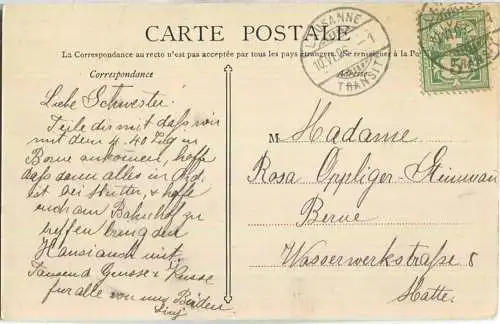 CARTE POSTALE
La Correspondance au recto n'est pas acceptée par tous les pays étrangers.
Correspondance
Adresse
LAUSANNE
TRANSIT
5
Liebe Schwester!
Teile dir mit daß wir
mit dem 4.40 Zug in
Berne ankommen, hoffe
daß dann alles in Ord.
ist bei Mutter, & hoffe
euch am Bahnhof zu
treffen bring den
Hansi auch mit.
Tausend Grüsse & Küsse
für alle von uns Beiden
M Madame
Rosa Oppliger-Steinmann
Berne
Wasserwerkstraße 8
Matte.